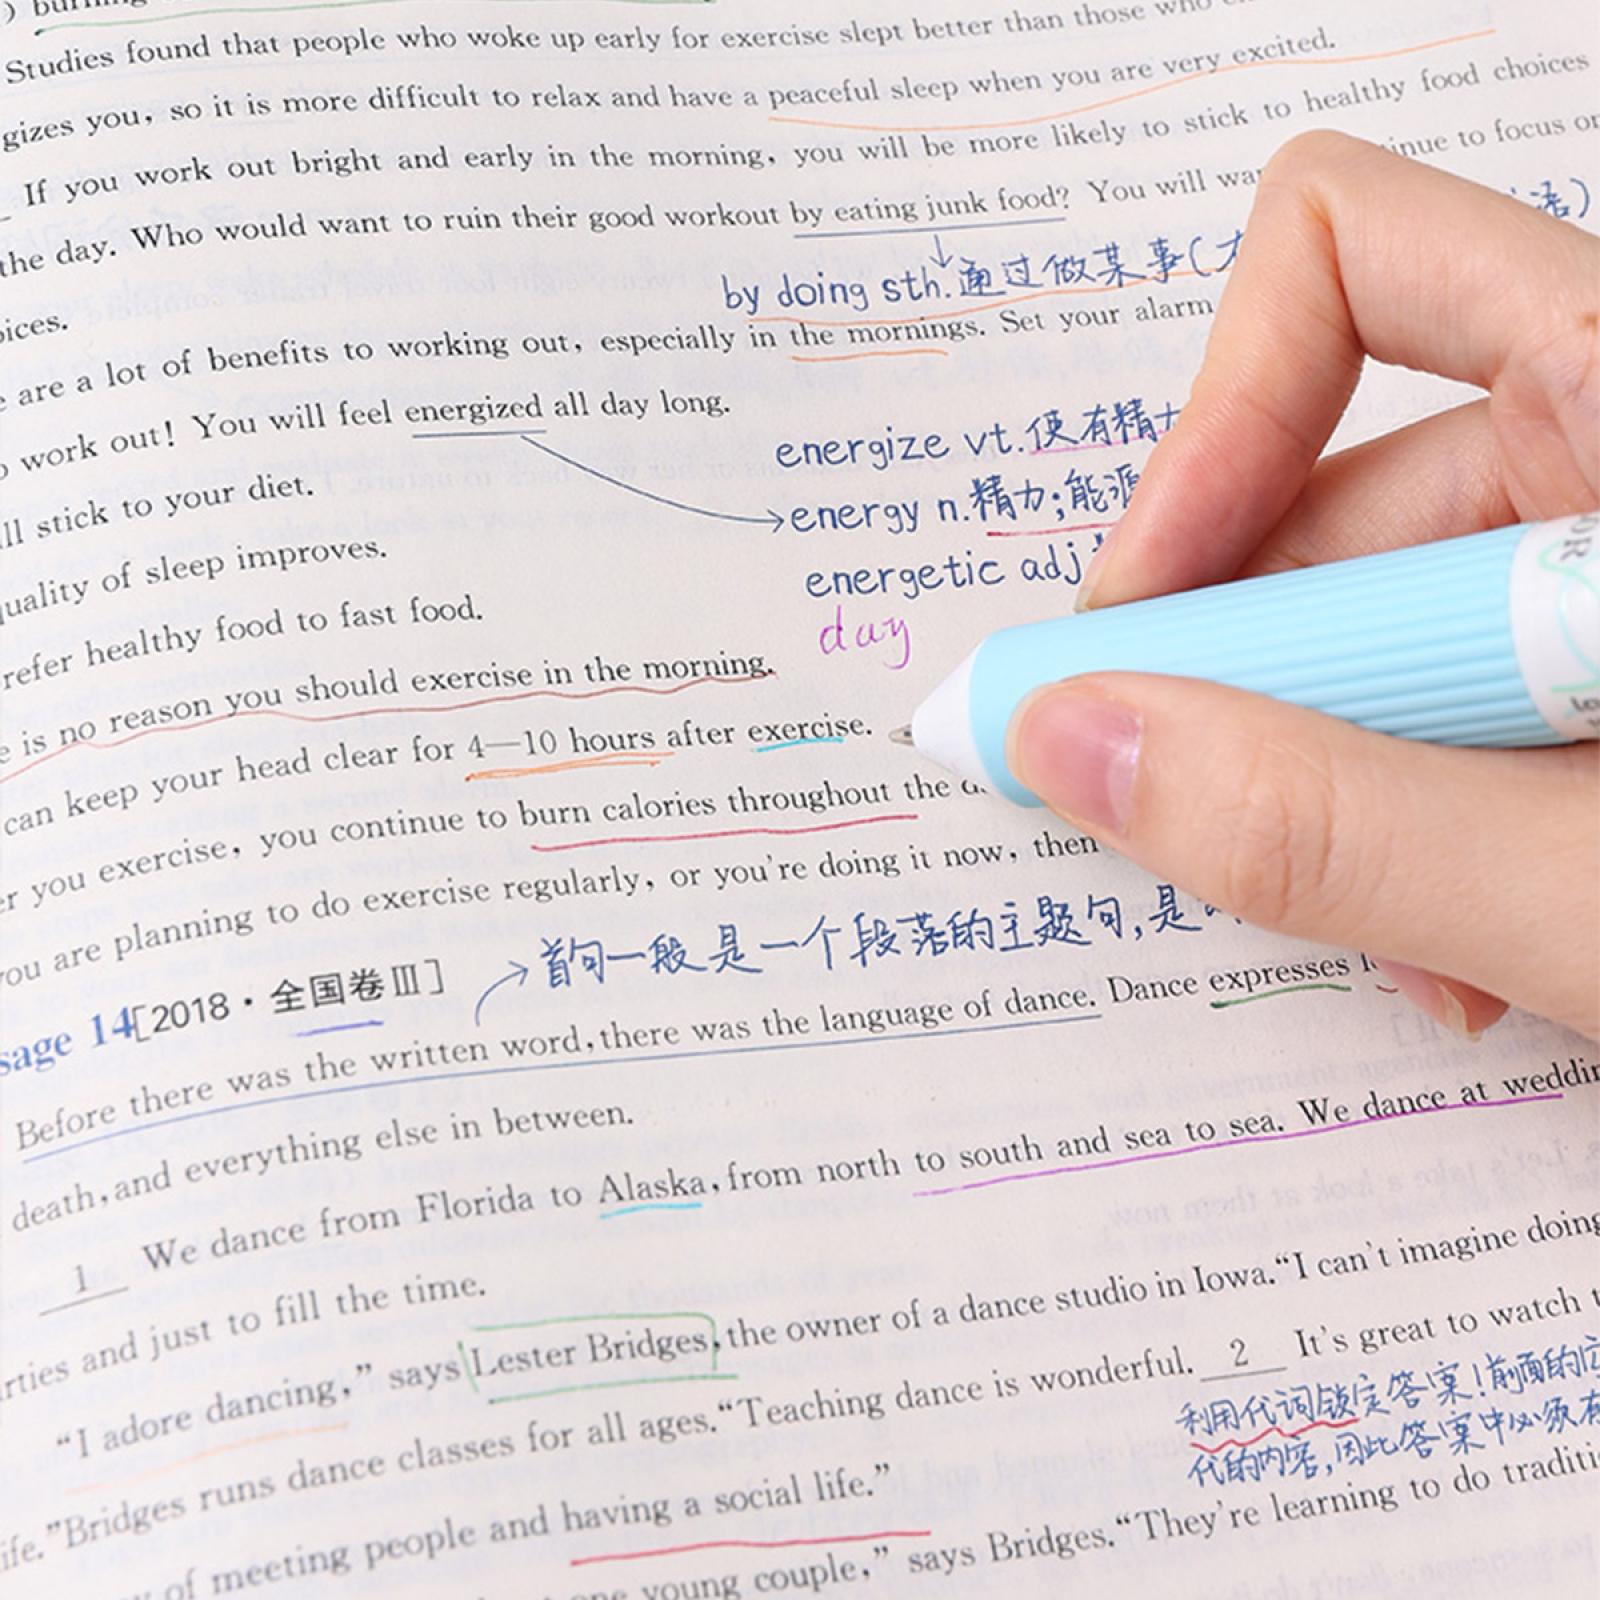 ) burning
Studies found that people who woke up early for exercise slept better than those who
gizes you, so it is more difficult to relax and have a peaceful sleep when you are very excited.
If you work out bright and early in the morning, you will be more likely to stick to healthy food choices
the day. Who would want to ruin their good workout by eating junk food? You will wa inue to focus on
by doing sth.通过做某事( 语)
oices.
e are a lot of benefits to working out, especially in the mornings. Set your alarm
o work out! You will feel energized all day long.
energize vt.使有精力
ill stick to your diet.
energy n.精力;能源
quality of sleep improves.
energetic adj
refer healthy food to fast food.
day
e is no reason you should exercise in the morning.
can keep your head clear for 4—10 hours after exercise.
er you exercise, you continue to burn calories throughout the
you are planning to do exercise regularly, or you're doing it now, then
首句一般是一个段落的主题句,是
sage 14[2018·全国卷Ⅲ]
Before there was the written word,there was the language of dance. Dance expresses
death,and everything else in between.
1 We dance from Florida to Alaska,from north to south and sea to sea. We dance at weddin
rties and just to fill the time.
“I adore dancing,” says Lester Bridges,the owner of a dance studio in Iowa.“I can't imagine doing
ife.”Bridges runs dance classes for all ages.“Teaching dance is wonderful. 2 It's great to watch t
利用代词锁定答案!前面的
代的内容,因此答案中必须有
y of meeting people and having a social life.”
one young couple,” says Bridges.“They're learning to do traditi